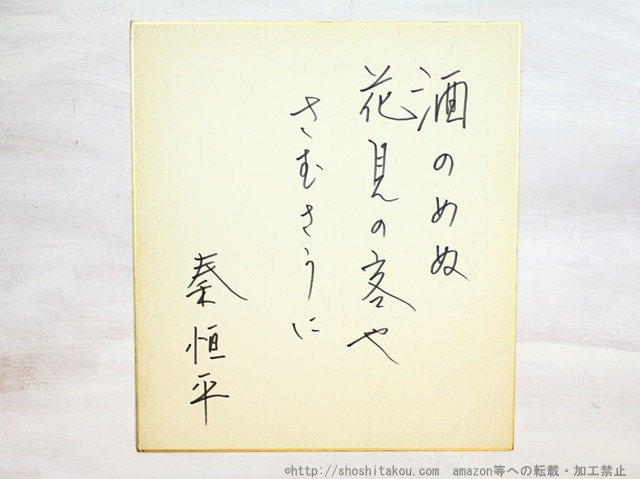 酒のめぬ
花見の客や
さむさうに
秦恒平
©http://shoshitakou.com amazon等への転載・加工禁止